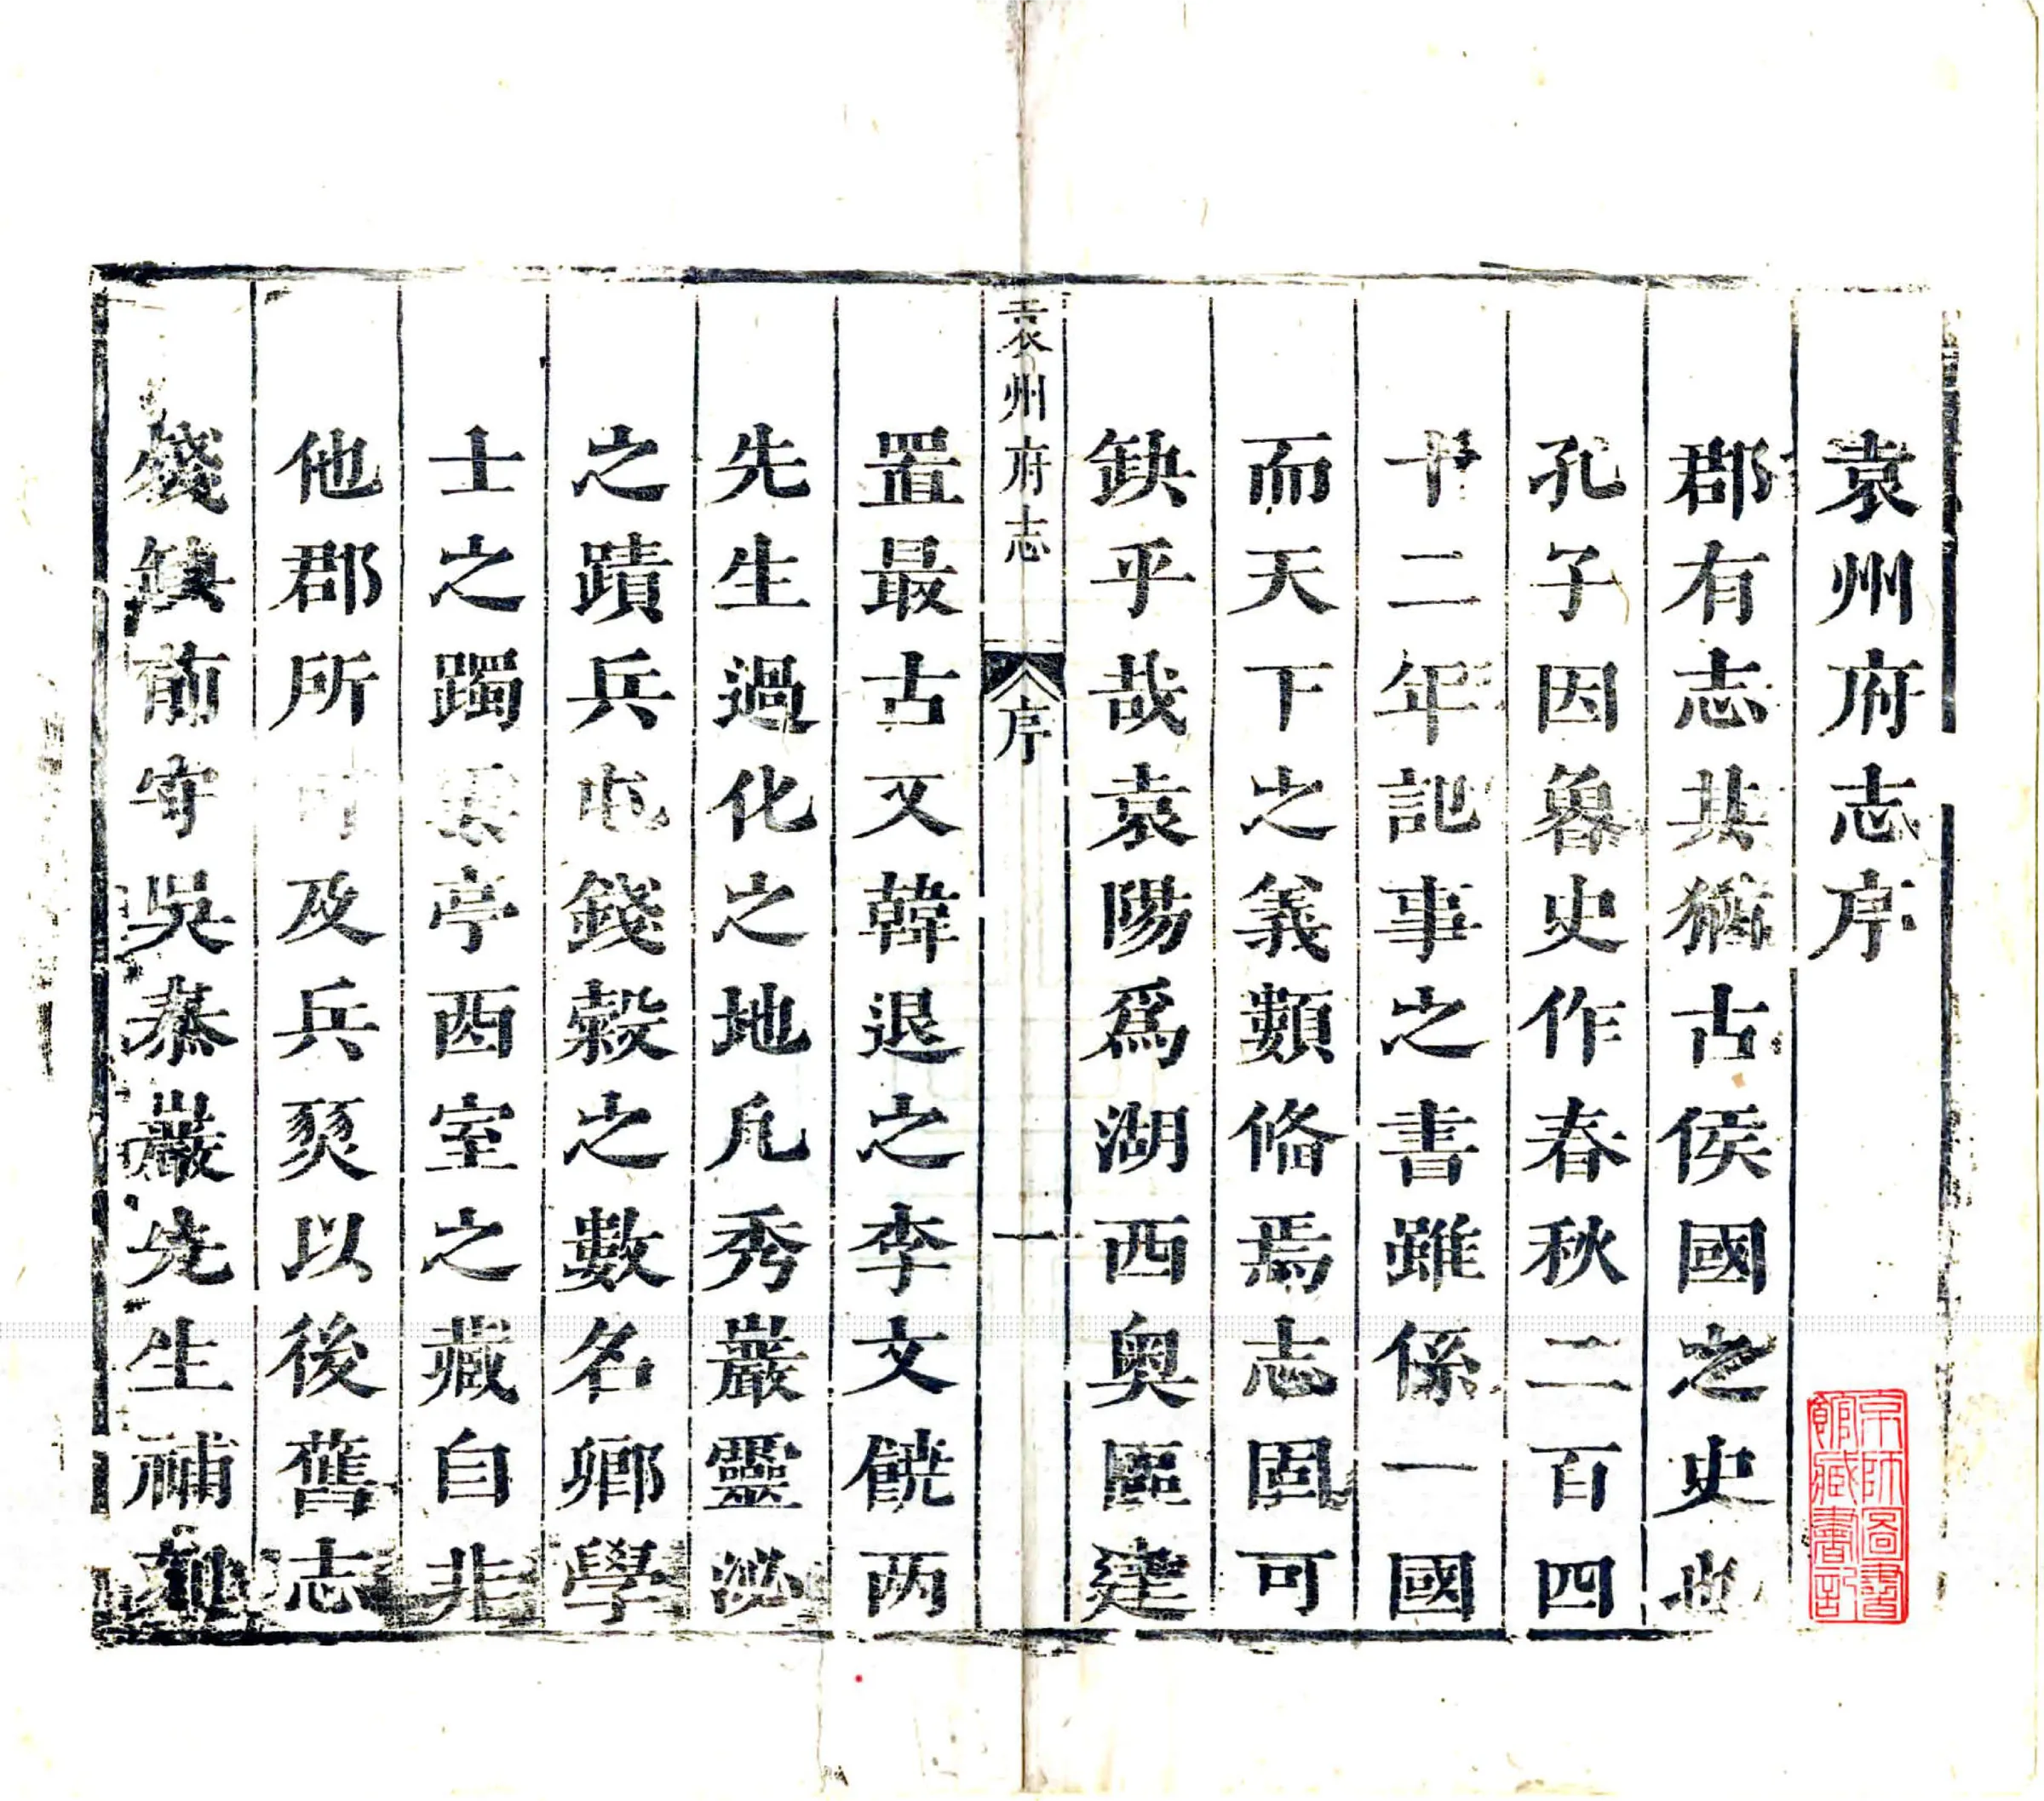 袁州府志序
郡有志其猶古侯國之史也
孔子因魯史作春秋二百四
十二年記事之書雖係一國
而天下之義類俻焉志固可
缺乎哉袁陽爲湖西奥區建
袁州府志 序 一
置最古又韓退之李文饒两
先生過化之地凡秀巖靈泌
之蹟兵屯錢穀之數名鄉學
士之躅雲亭酉室之藏自非
他郡所可及兵燹以後舊志
殘缺前守吳慕巖先生補刻
京師圖書
館藏書記